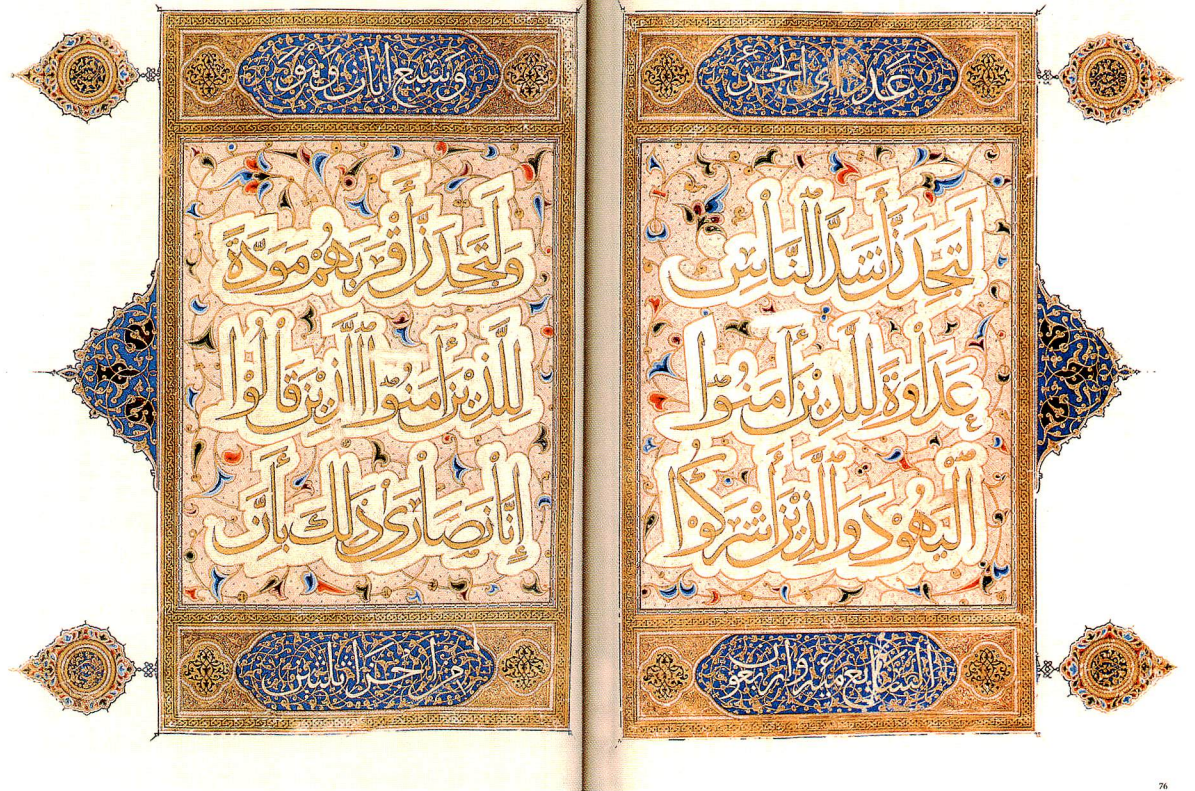 عدد اى الجزء
لَتَجِدَنَّ أَشَدَّ النَّاسِ
عَدَاوَةً لِلَّذِيْنَ أَمَنُوا
الْيَهُوْدَ وَالَّذِيْنَ أَشْرَكُوْا
السابع واربعون
وسبع ايات وهو
وَلَتَجِدَنَّ أَقْرَبَهُمْ مَوَدَّةً
لِلَّذِيْنَ أَمَنُوا الَّذِيْنَ قَالُوْا
إِنَّا نَصَارَى ذٰلِكَ بِأَنَّ
من اجزا ثلثين
76